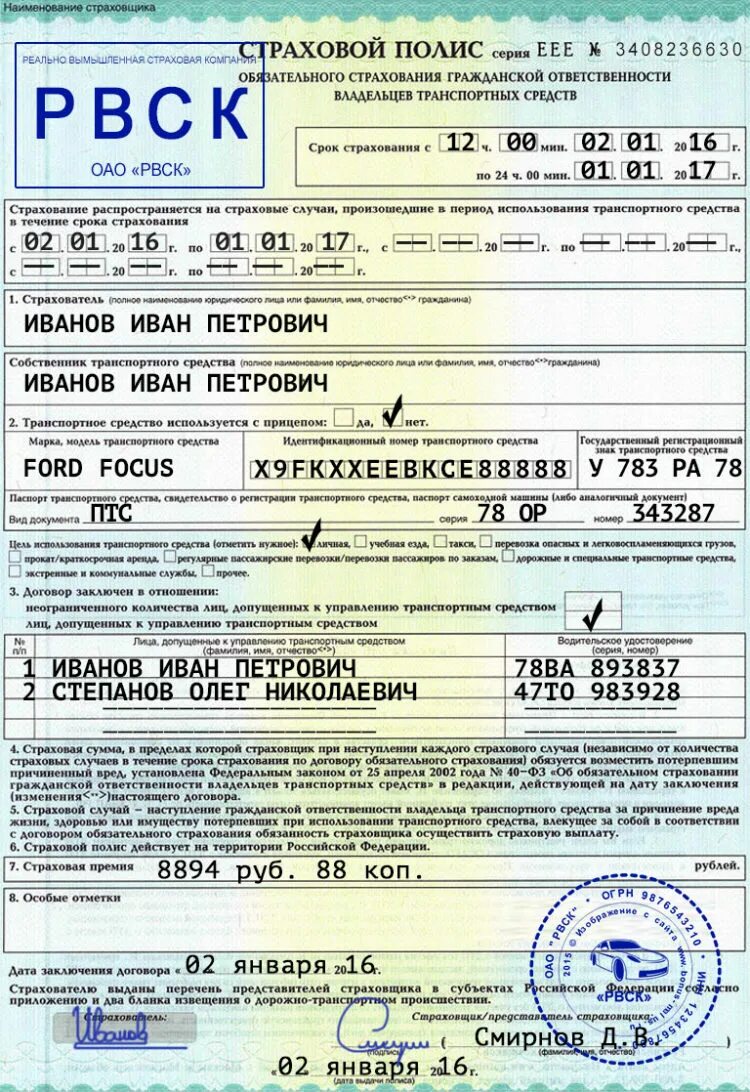 Наименование страховщика
РЕАЛЬНО ВЫМЫШЛЕННАЯ СТРАХОВАЯ КОМПАНИЯ
РВСК
ОАО «РВСК»
СТРАХОВОЙ ПОЛИС серия ЕЕЕ № 3408236630
ОБЯЗАТЕЛЬНОГО СТРАХОВАНИЯ ГРАЖДАНСКОЙ ОТВЕТСТВЕННОСТИ
ВЛАДЕЛЬЦЕВ ТРАНСПОРТНЫХ СРЕДСТВ
Срок страхования с 12 ч. 00 мин. 02. 01. 2016 г.
по 24 ч. 00 мин. 01. 01. 2017 г.
Страхование распространяется на страховые случаи, произошедшие в период использования транспортного средства
в течение срока страхования
с 02. 01. 2016 г. по 01. 01. 2017 г., с —. —. 20— г. по —. —. 20— г.,
с —. —. 20— г. по —. —. 20— г.
1. Страхователь (полное наименование юридического лица или фамилия, имя, отчество<*> гражданина)
ИВАНОВ ИВАН ПЕТРОВИЧ
Собственник транспортного средства (полное наименование юридического лица или фамилия, имя, отчество<*>гражданина)
ИВАНОВ ИВАН ПЕТРОВИЧ
2. Транспортное средство используется с прицепом: да, нет.
Марка, модель транспортного средства
FORD FOCUS
Идентификационный номер транспортного средства
X9FKXXEEBKCE88888
Государственный регистрационный
знак транспортного средства
У 783 РА 78
Паспорт транспортного средства, свидетельство о регистрации транспортного средства, паспорт самоходной машины (либо аналогичный документ)
Вид документа ПТС серия 78 ОР номер 343287
Цель использования транспортного средства (отметить нужное): личная, учебная езда, такси, перевозка опасных и легковоспламеняющихся грузов,
прокат/краткосрочная аренда, регулярные пассажирские перевозки/перевозки пассажиров по заказам, дорожные и специальные транспортные средства,
экстренные и коммунальные службы, прочее.
3. Договор заключен в отношении:
неограниченного количества лиц, допущенных к управлению транспортным средством
лиц, допущенных к управлению транспортным средством
№ п/п
Лица, допущенные к управлению транспортным средством
(фамилия, имя, отчество<*>)
Водительское удостоверение
(серия, номер)
1 ИВАНОВ ИВАН ПЕТРОВИЧ 78ВА 893837
2 СТЕПАНОВ ОЛЕГ НИКОЛАЕВИЧ 47ТО 983928
4. Страховая сумма, в пределах которой страховщик при наступлении каждого страхового случая (независимо от количества
страховых случаев в течение срока страхования по договору обязательного страхования) обязуется возместить потерпевшим
причиненный вред, установлена Федеральным законом от 25 апреля 2002 года № 40-ФЗ «Об обязательном страховании
гражданской ответственности владельцев транспортных средств» в редакции, действующей на дату заключения
(изменения<**>)настоящего договора.
5. Страховой случай – наступление гражданской ответственности владельца транспортного средства за причинение вреда
жизни, здоровью или имуществу потерпевших при использовании транспортного средства, влекущее за собой в соответствии
с договором обязательного страхования обязанность страховщика осуществить страховую выплату.
6. Страховой полис действует на территории Российской Федерации.
7. Страховая премия 8894 руб. 88 коп. рублей.
8. Особые отметки
Дата заключения договора «02 января 2016г.
Страхователю выданы перечень представителей страховщика в субъектах Российской Федерации согласно
приложению и два бланка извещения о дорожно-транспортном происшествии.
Страхователь:
Иванов
Страховщик/представитель страховщика:
(подпись)
( Смирнов Д.В.
(фамилия, имя, отчество)
«02 января 2016г.
(дата выдачи полиса)
ОАО "РВСК" • ОГРН 9876543210 • ИНН
2015 © Изображение с сайта
«РВСК»